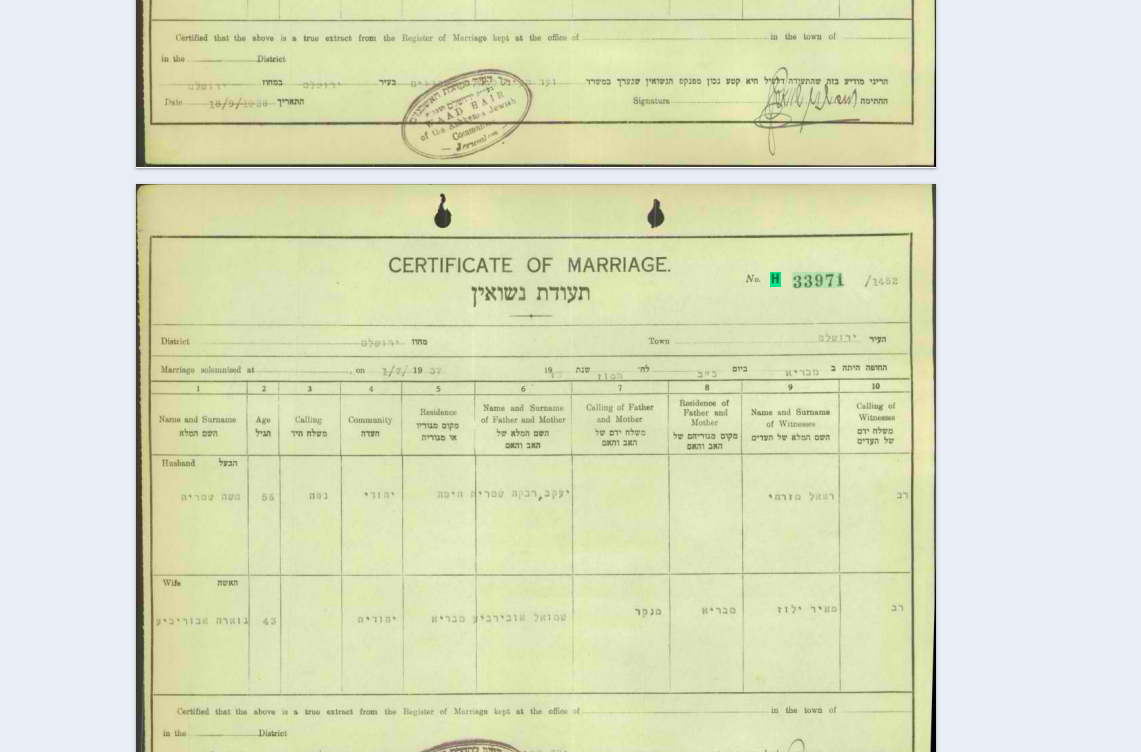 Certified that the above is a true extract from the Register of Marriage kept at the office of in the town of
in the District
הריני מודיע בזה שהתעודה דלעיל היא קטע נכון מפנקס הנשואין שנערך במשרד בעיר ירושלם במחוז ירושלם
Date 18/9/1938 התאריך Signature החתימה
VAAD HAIR
of the Ashkenazi Jewish
Community
— Jerusalem —
CERTIFICATE OF MARRIAGE.
No. H 33971 /1452
תעודת נשואין
District ירושלם מחוז Town ירושלם העיר
Marriage solemnised at , on 1/7/ 19 37 19 שנת תמוז לח' כ״ב ביום טבריא החופה היתה ב
1 2 3 4 5 6 7 8 9 10
Name and Surname השם המלא
Age הגיל
Calling משלח היד
Community העדה
Residence מקום מגוריו או מגוריה
Name and Surname of Father and Mother השם המלא של האב והאם
Calling of Father and Mother משלח ידם של האב והאם
Residence of Father and Mother מקום מגוריהם של האב והאם
Name and Surname of Witnesses השם המלא של העדים
Calling of Witnesses משלח ידם של העדים
Husband הבעל
משה 56 יהודי חיפה יעקב,רבקה רפאל מזרחי רב
Wife האשה
43 יהודית טבריא שמואל מנקר טבריא מאיר ילוז רב
Certified that the above is a true extract from the Register of Marriage kept at the office of in the town of
in the District